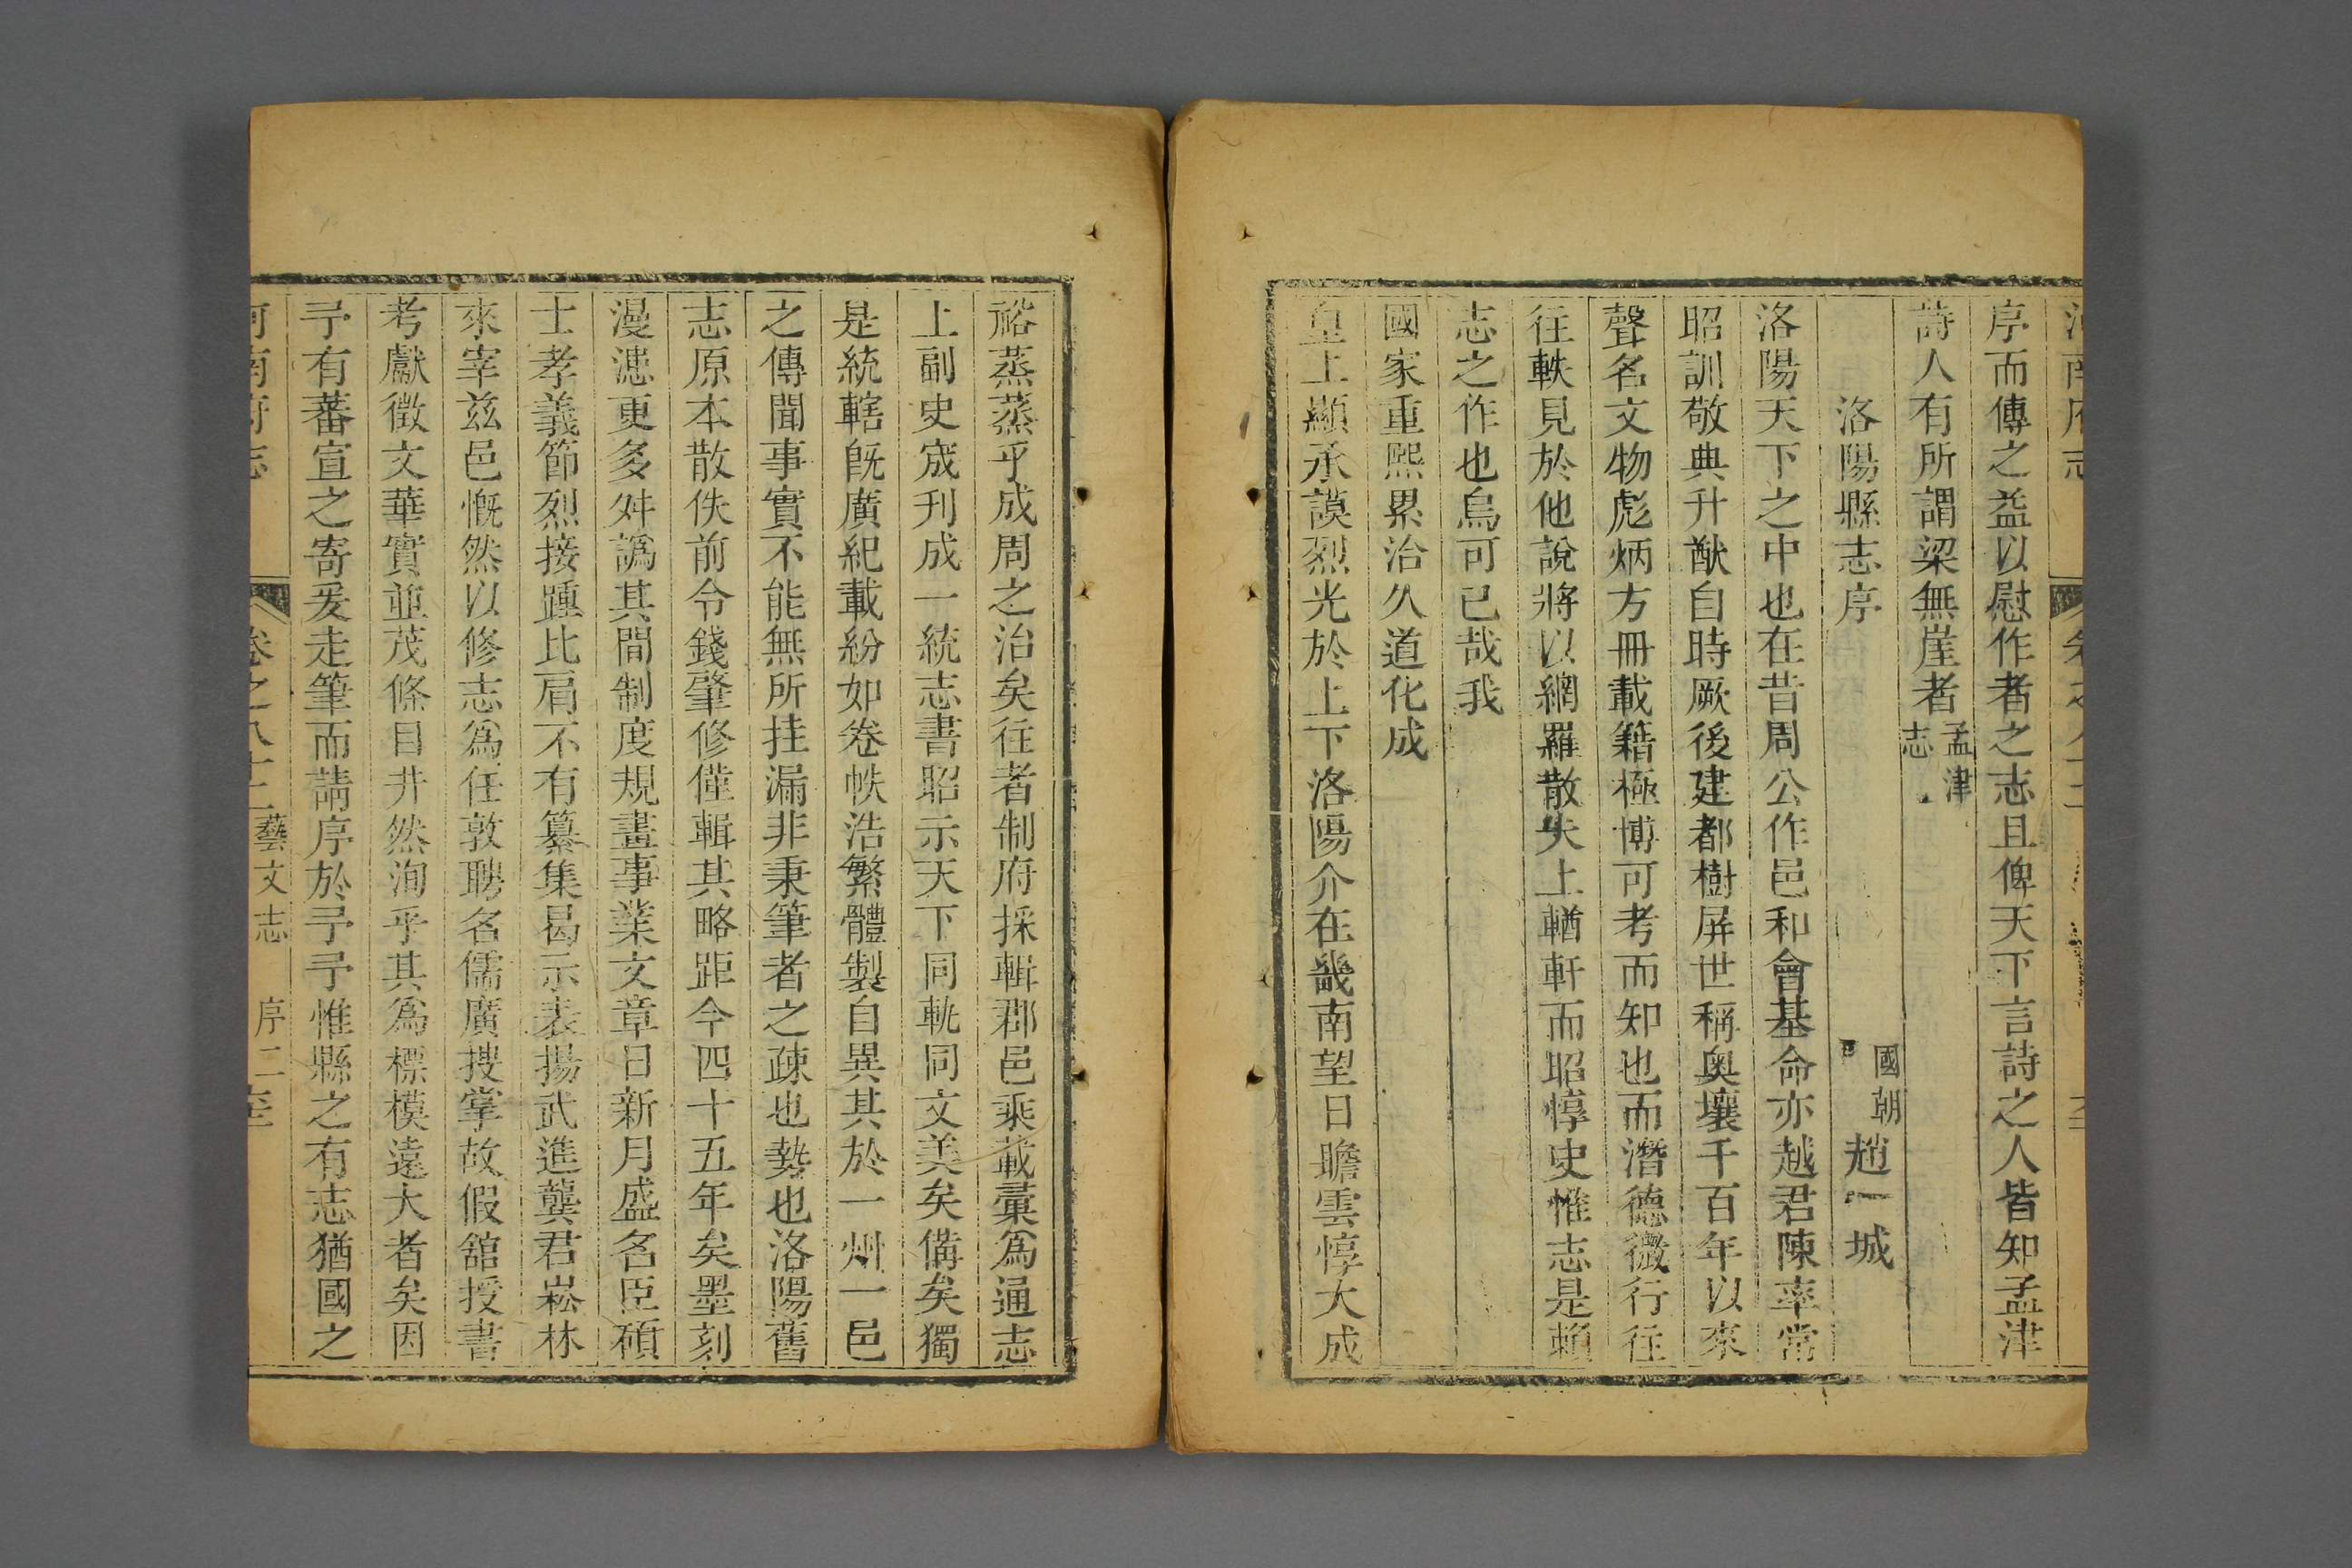 序而傳之益以慰作者之志且俾天下言詩之人皆知孟津
詩人有所謂梁無崖者孟津志
洛陽縣志序
國朝趙一城
洛陽天下之中也在昔周公作邑和會基命亦越君陳率常
昭訓敬典升猷自時厥後建都樹屏世稱奥壤千百年以來
聲名文物彪炳方冊載籍極博可考而知也而潛德微行往
往軼見於他說將以網羅散失上輶軒而昭惇史惟志是賴
志之作也烏可已哉我
國家重熙累洽久道化成
皇上顯承謨烈光於上下洛陽介在畿南望日瞻雲惇大成
裕蒸蒸乎成周之治矣往者制府採輯郡邑乘載彙爲通志
上副史宬刊成一統志書昭示天下同軌同文美矣備矣獨
是統轄旣廣紀載紛如卷帙浩繁體製自異其於一州一邑
之傳聞事實不能無所挂漏非秉筆者之疎也勢也洛陽舊
志原本散佚前令錢肇修僅輯其略距今四十五年矣墨刻
漫漶更多舛譌其間制度規畫事業文章日新月盛名臣碩
士孝義節烈接踵比肩不有纂集曷示表揚武進龔君崧林
來宰兹邑慨然以修志爲任敦聘名儒廣搜掌故假舘授書
考獻徵文華實並茂條目井然洵乎其爲標模遠大者矣因
予有蕃宣之寄爰走筆而請序於予予惟縣之有志猶國之
河南府志 卷之八十二 藝文志 序二